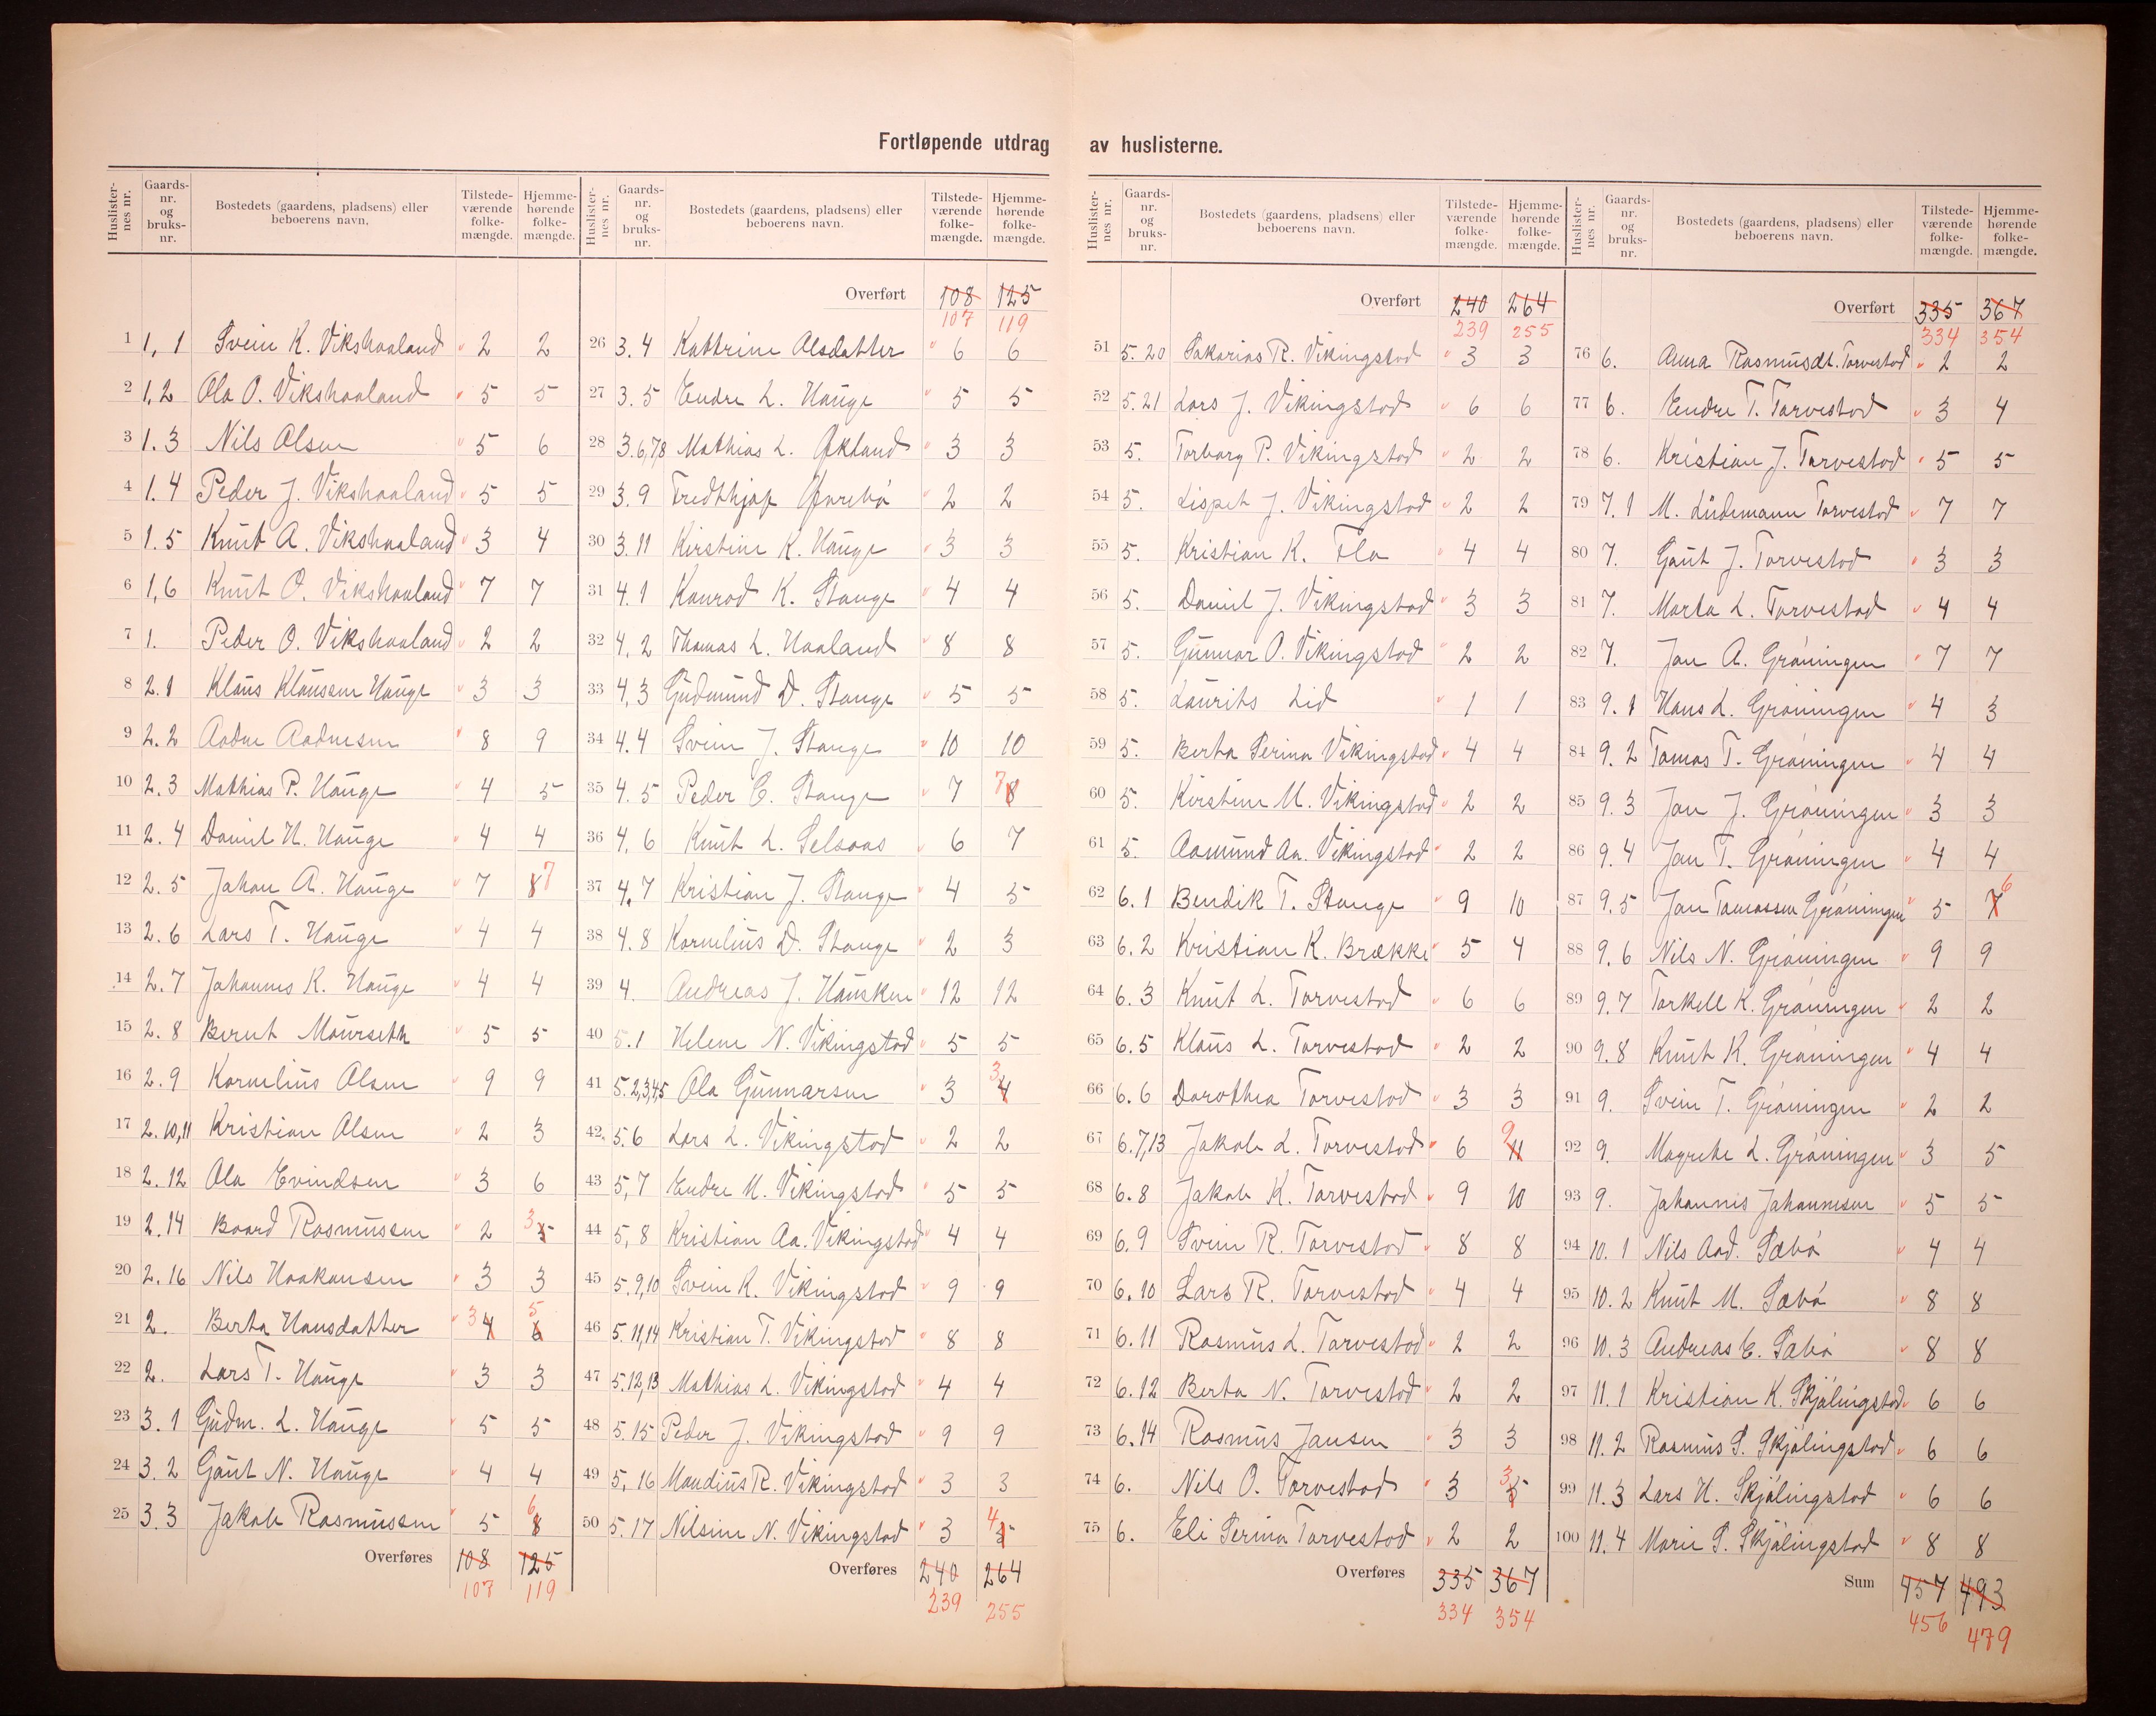 Fortløpende utdrag av huslisterne.
Huslister-nes nr. Gaards-nr. og bruks-nr. Bostedets (gaardens, pladsens) eller beboerens navn. Tilstede-værende folke-mængde. Hjemme-hørende folke-mængde.
1 1,1 Svein K. Vikshaaland 2 2
2 1,2 Ola O. Vikshaaland 5 5
3 1.3 Nils Olsen 5 6
4 1.4 Peder J. Vikshaaland 5 5
5 1.5 Knut A. Vikshaaland 3 4
6 1,6 Knut O. Vikshaaland 7 7
7 1. Peder O. Vikshaaland 2 2
8 2.1 Klaus Klausen Hauge 3 3
9 2.2 Aadne Aadnesen 8 9
10 2.3 Mathias P. Hauge 4 5
11 2.4 Daniel H. Hauge 4 4
12 2.5 Johan A. Hauge 7 8 7
13 2.6 Lars T. Hauge 4 4
14 2.7 Johannes K. Hauge 4 4
15 2.8 Bernt Mourseth 5 5
16 2.9 Kornelius Olsen 9 9
17 2.10,11 Kristian Olsen 2 3
18 2.12 Ola Evindsen 3 6
19 2.14 Baard Rasmussen 2 3 5
20 2.16 Nils Haakonsen 3 3
21 2. Berta Hansdatter 3 4 5 6
22 2. Lars T. Hauge 3 3
23 3.1 Gudm. L. Hauge 5 5
24 3.2 Gaut N. Hauge 4 4
25 3.3 Jakob Rasmussen 5 6 8
Overføres 108 125
107 119
Huslister-nes nr. Gaards-nr. og bruks-nr. Bostedets (gaardens, pladsens) eller beboerens navn. Tilstede-værende folke-mængde. Hjemme-hørende folke-mængde.
Overført 108 125
107 119
26 3.4 Kattrine Olsdatter 6 6
27 3.5 Endre L. Hauge 5 5
28 3.6,7,8 Mathias L. Økland 3 3
29 3.9 Fredthjof 2 2
30 3.11 Kirstine K. Hauge 3 3
31 4.1 Konrad K. Stange 4 4
32 4.2 Thomas L. Haaland 8 8
33 4,3 Gudmund D. Stange 5 5
34 4.4 Svein J. Stange 10 10
35 4.5 Peder C. Stange 7 7 8
36 4,6 Knut L. Selsaas 6 7
37 4.7 Kristian J. Stange 4 5
38 4.8 Kornelius D. Stange 2 3
39 4. Andreas J. Hausken 12 12
40 5.1 Helene N. Vikingstad 5 5
41 5.2,3,4,5 Ola Gunnarsen 3 3 4
42 5.6 Lars L. Vikingstad 2 2
43 5,7 Endre M. Vikingstad 5 5
44 5,8 Kristian Aa. Vikingstad 4 4
45 5.9,10 Svein K. Vikingstad 9 9
46 5.11,14 Kristian T. Vikingstad 8 8
47 5.12,13 Mathias L. Vikingstad 4 4
48 5.15 Peder J. Vikingstad 9 9
49 5,16 Maudius R. Vikingstad 3 3
50 5.17 Nilsine N. Vikingstad 3 4 5
Overføres 240 264
239 255
Huslister-nes nr. Gaards-nr. og bruks-nr. Bostedets (gaardens, pladsens) eller beboerens navn. Tilstede-værende folke-mængde. Hjemme-hørende folke-mængde.
Overført 240 264
239 255
51 5.20 Sakarias R. Vikingstad 3 3
52 5.21 Lars J. Vikingstad 6 6
53 5. Torborg P. Vikingstad 2 2
54 5. Lispet J. Vikingstad 2 2
55 5. Kristian K. Flo 4 4
56 5. Daniel J. Vikingstad 3 3
57 5. Gunnar O. Vikingstad 2 2
58 5. Laurits Lid 1 1
59 5. Berta Serina Vikingstad 4 4
60 5. Kirstine M. Vikingstad 2 2
61 5. Aasmund Aa. Vikingstad 2 2
62 6.1 Bendik T. Stange 9 10
63 6.2 Kristian K. Brække 5 4
64 6.3 Knut L. Torvestad 6 6
65 6.5 Klaus L. Torvestad 2 2
66 6.6 Dorothea Torvestad 3 3
67 6.7,13 Jakob L. Torvestad 6 9 11
68 6.8 Jakob K. Torvestad 9 10
69 6.9 Svein R. Torvestad 8 8
70 6.10 Lars R. Torvestad 4 4
71 6.11 Rasmus L. Torvestad 2 2
72 6.12 Berta N. Torvestad 2 2
73 6.14 Rasmus Jansen 3 3
74 6. Nils O. Torvestad 3 3 5
75 6. Eli Serina Torvestad 2 2
Overføres 335 367
334 354
Huslister-nes nr. Gaards-nr. og bruks-nr. Bostedets (gaardens, pladsens) eller beboerens navn. Tilstede-værende folke-mængde. Hjemme-hørende folke-mængde.
Overført 335 367
334 354
76 6. Anna Rasmusdt. Torvestad 2 2
77 6. Endre T. Torvestad 3 4
78 6. Kristian J. Torvestad 5 5
79 7.1 M. Lüdemann Torvestad 7 7
80 7. Gaut J. Torvestad 3 3
81 7. Marta L. Torvestad 4 4
82 7. Jan A. Grøningen 7 7
83 9.1 Hans L. Grøningen 4 3
84 9.2 Tomas T. Grøningen 4 4
85 9.3 Jan J. Grøningen 3 3
86 9.4 Jan T. Grøningen 4 4
87 9.5 Jan Tomassen Grøningen 5 7 6
88 9.6 Nils N. Grøningen 9 9
89 9.7 Torkell K. Grøningen 2 2
90 9.8 Knut K. Grøningen 4 4
91 9. Svein T. Grøningen 2 2
92 9. Magrete L. Grøningen 3 5
93 9. Johannes Johannesen 5 5
94 10.1 Nils Aad. Sæbø 4 4
95 10.2 Knut M. Sæbø 8 8
96 10.3 Andreas E. Sæbø 8 8
97 11.1 Kristian K. Skjølingstad 6 6
98 11.2 Rasmus S. Skjølingstad 6 6
99 11.3 Lars H. Skjølingstad 6 6
100 11.4 Marie S. Skjølingstad 8 8
Sum 457 493
456 479